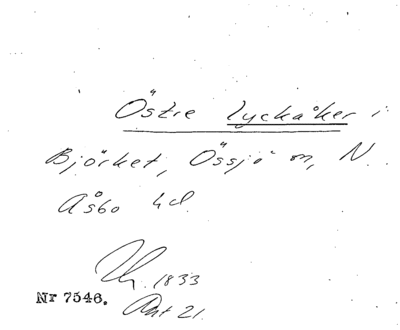 Östre Lyckåker i
Björket, Össjö sn, N.
Åsbo hd.
1833
Nr 7546.
Akt 21.